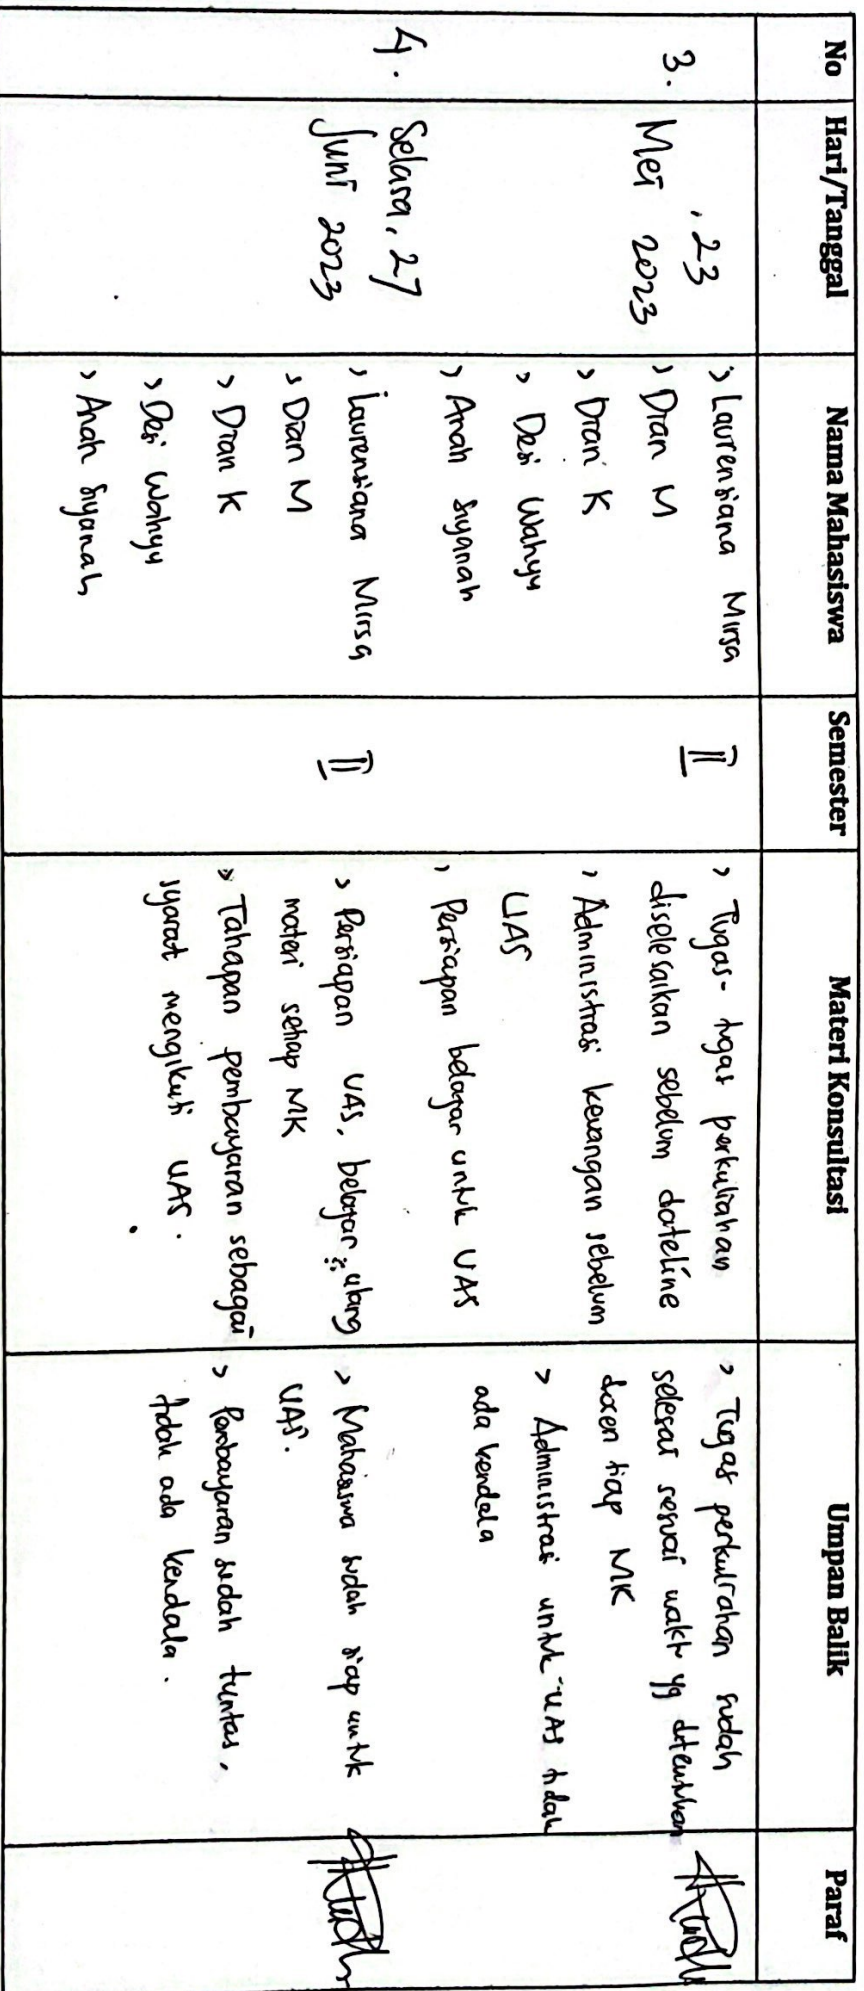 No Hari/Tanggal Nama Mahasiswa Semester Materi Konsultasi Umpan Balik Paraf
3.
, 23
Mei 2023
> Laurensiana Mirsa
> Dian M
> Dian K
> Desi Wahyu
> Anah Siyanah
II
> Tugas-tugas perkuliahan
diselesaikan sebelum dateline
> Administrasi keuangan sebelum
UAS
> Persiapan belajar untuk UAS
> Tugas perkuliahan sudah
selesai sesuai waktu yg ditentukan
dosen tiap MK
> Administrasi untuk UAS tidak
ada kendala
4.
Selasa, 27
Juni 2023
> Laurensiana Mirsa
> Dian M
> Dian K
> Desi Wahyu
> Anah Siyanah
II
> Persiapan UAS, belajar ulang
materi setiap MK
> Tahapan pembayaran sebagai
syarat mengikuti UAS.
> Mahasiswa sudah siap untuk
UAS.
> Pembayaran sudah tuntas,
tidak ada kendala.